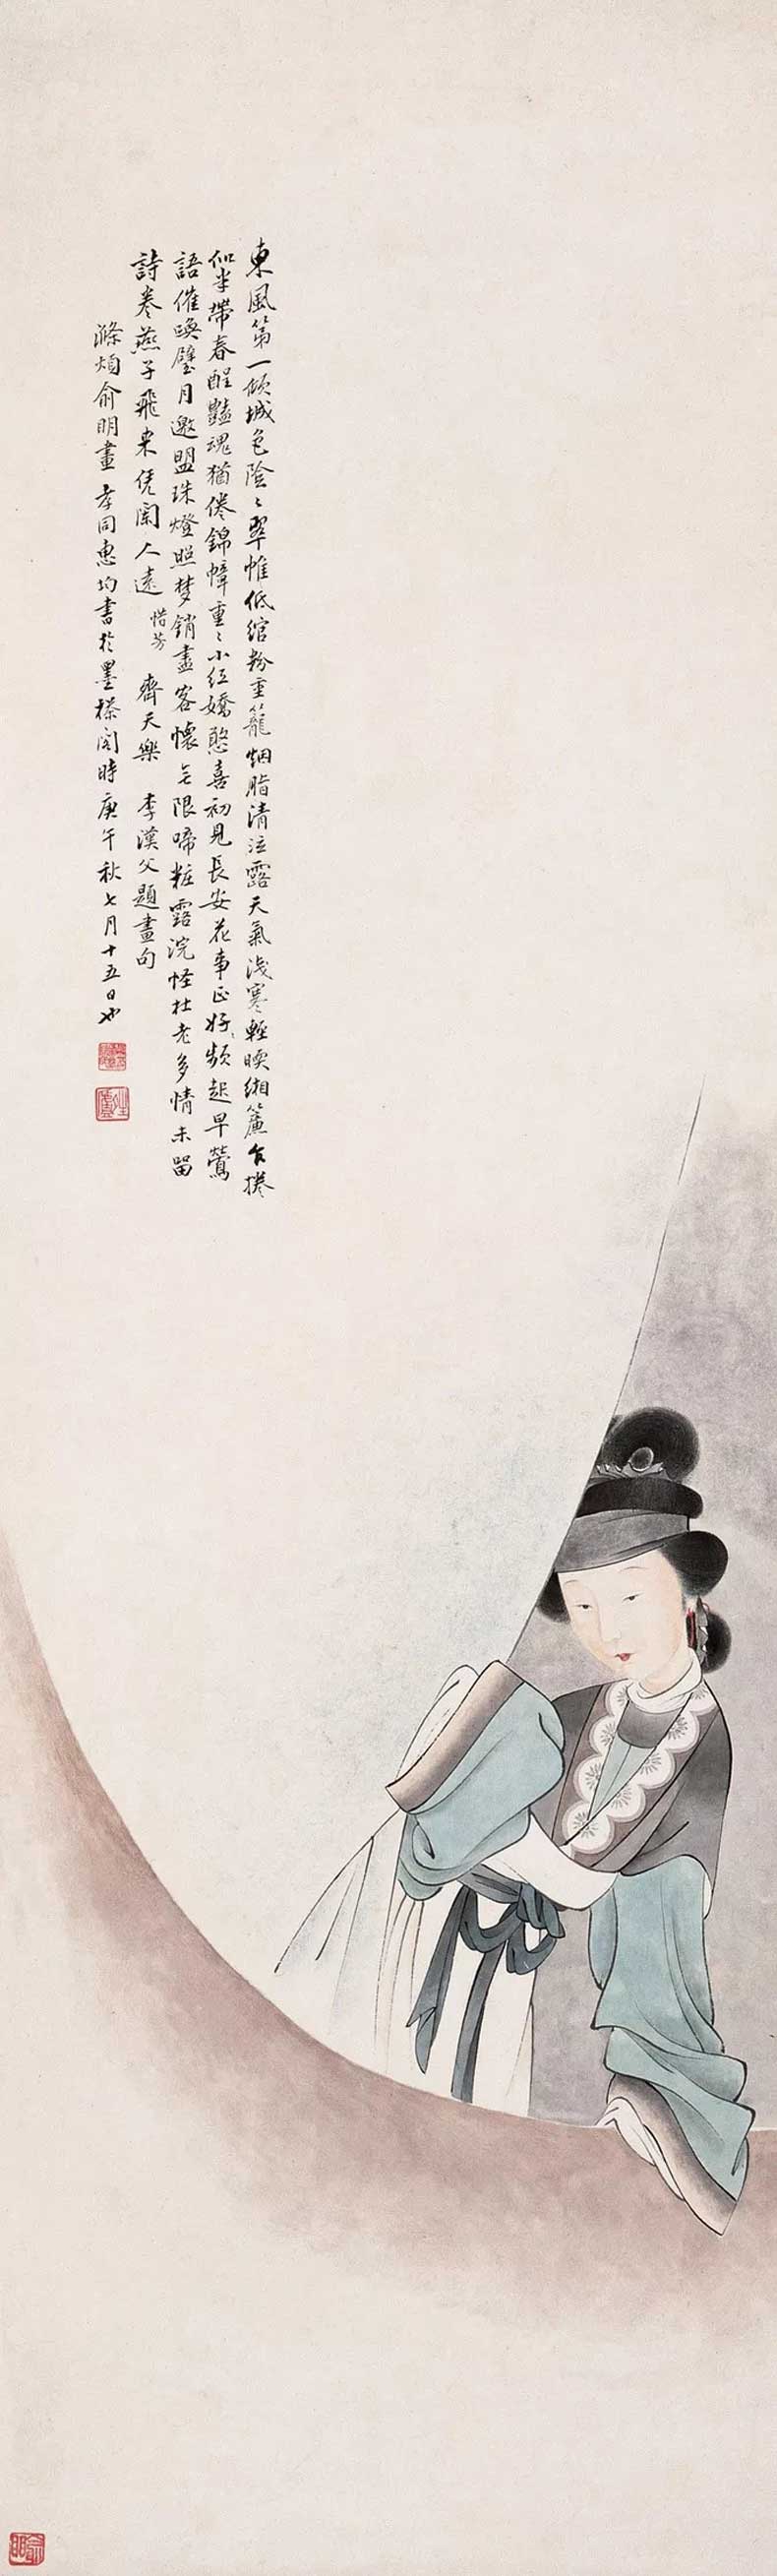 東風第一傾城色陰〻翠帷低綰粉重籠烟脂清泣露天氣淺寒輕暝緗簾乍捲
似半帶春酲豔魂猶倦錦幛重〻小紅嬌憨喜初見長安花事正好頻起早鶯
語催喚璧月邀盟珠燈照梦銷盡客懷无限啼粧露浣怪杜老多情未留
詩卷燕子飛来凭闌人遠 惜芳 齊天樂 李漢父題畫句
滌煩俞明畫 孝同惠均書於墨樑閣時庚午秋七月十五日也
俞明